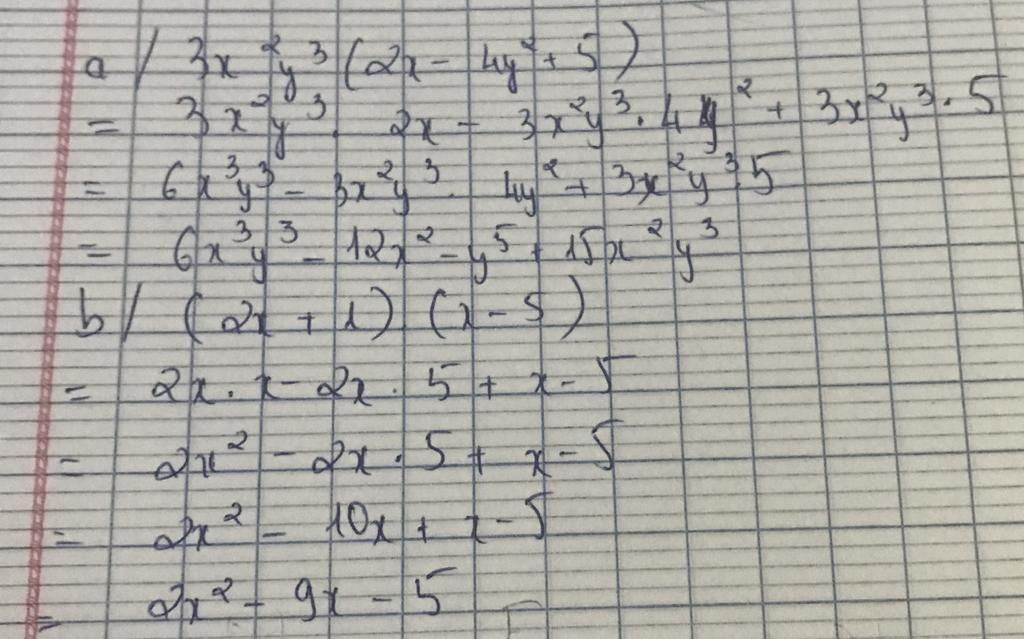 a/ 3x²y³(2x - 4y² + 5)
= 3x²y³. 2x - 3x²y³. 4y² + 3x²y³. 5
= 6x³y³ - 3x²y³. 4y² + 3x²y³.5
= 6x³y³ - 12x² - y⁵ + 15x²y³
b/ (2x + 1) (x - 5)
= 2x. x - 2x. 5 + x - 5
= 2x² - 2x. 5 + x - 5
= 2x² - 10x + x - 5
= 2x² - 9x - 5